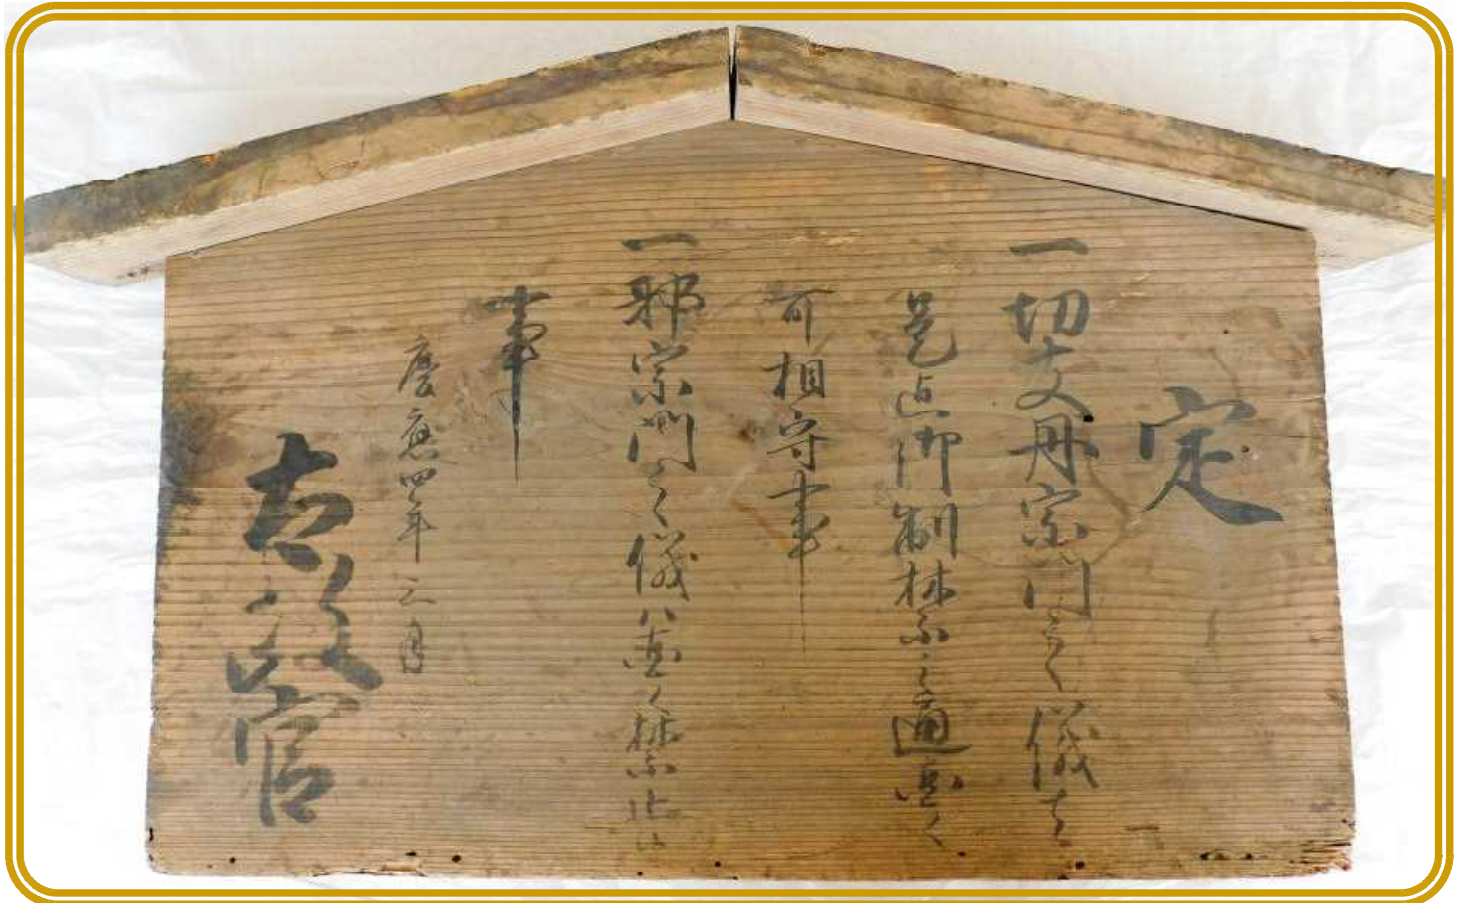 定
一切支丹宗門之儀者
是迠御制禁之通固く
可相守事
一邪宗門之儀ハ固く禁止
事
慶應四年三月
太政官